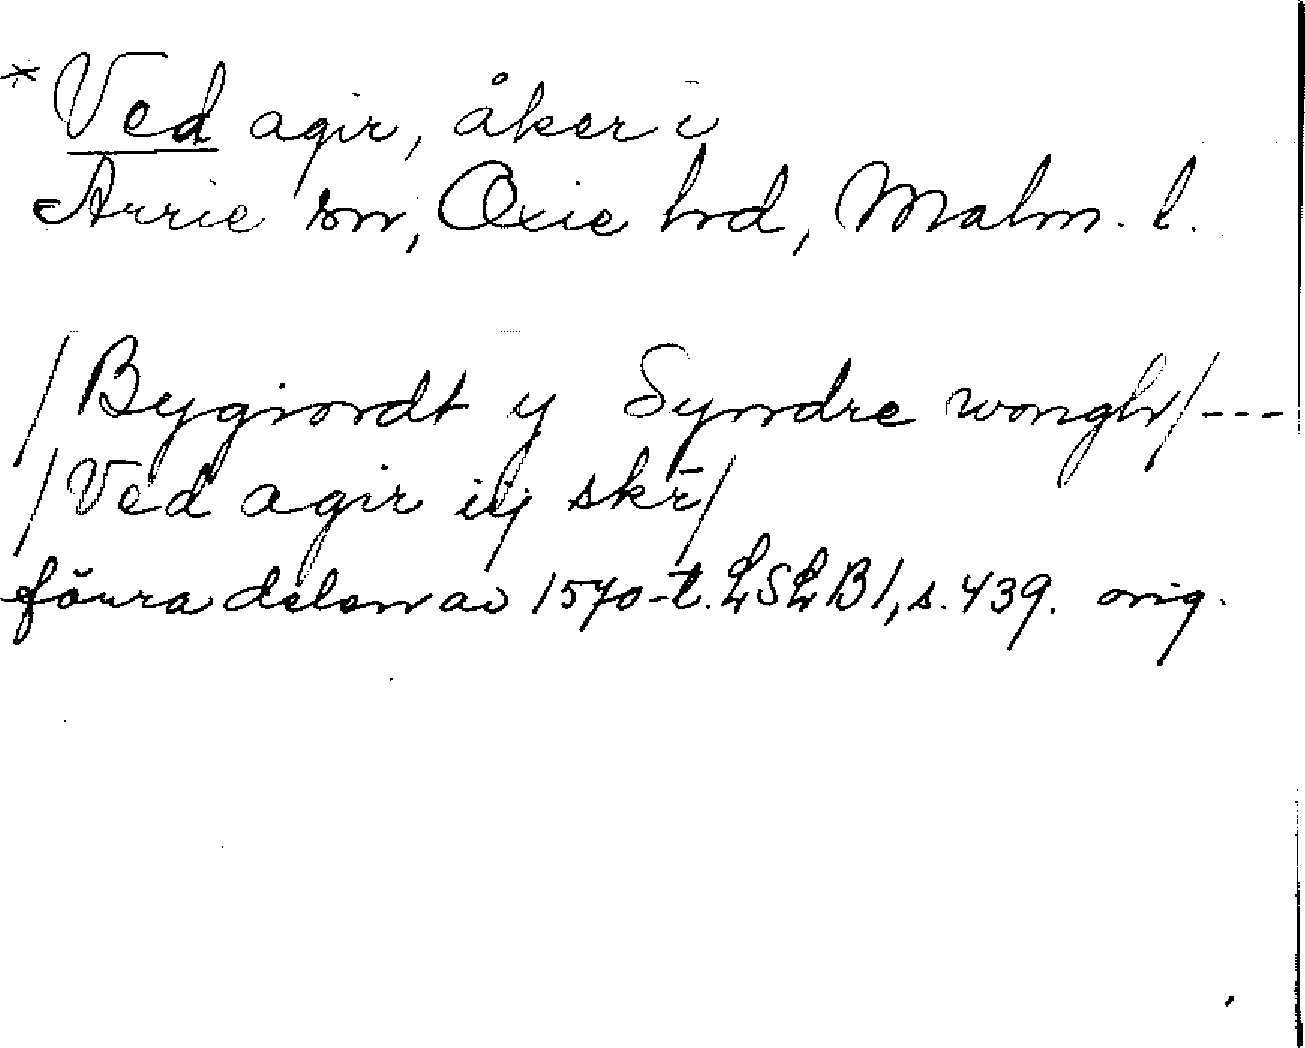 * Ved agir, åker i
Arrie sn, Oxie hd, Malm. l.
/Bygiordt y Syndre wongh/---
/Ved agir iij skr/
förra delen av 1570-t. LSLB1, s. 439. orig.